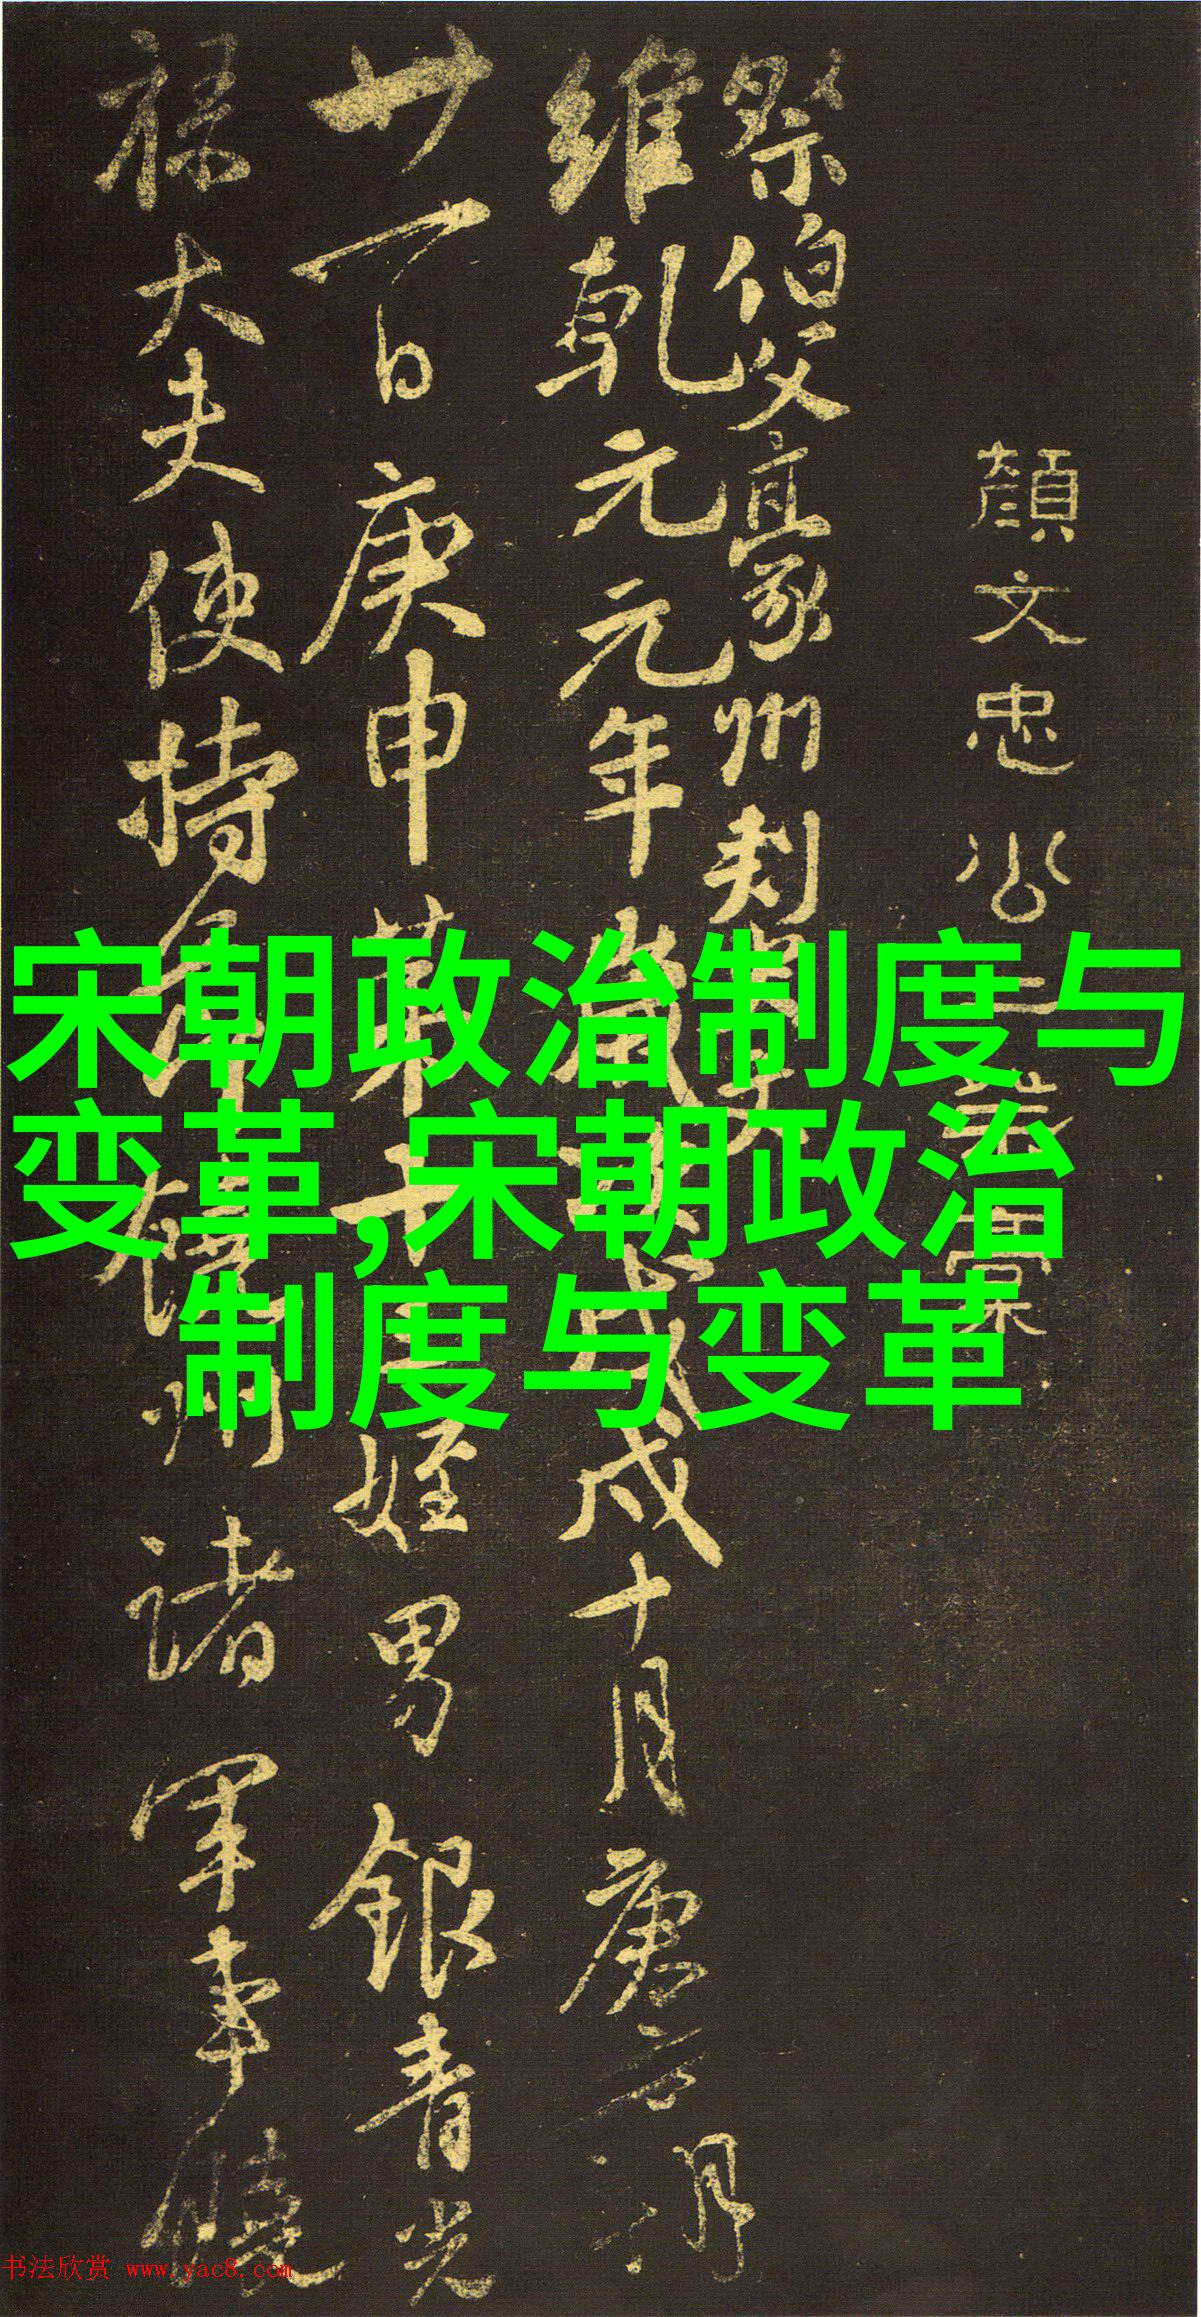 顏文忠公三表稾
祭伯父豪州刺史文
維乾元元年歲次戊戌十月庚寅朔
廿一日庚申第十三姪男銀青光
祿大夫使持節饒州諸軍事饒
宋朝政治制度与
变革,宋朝政治
制度与变革
书法欣赏 www.yac8.com